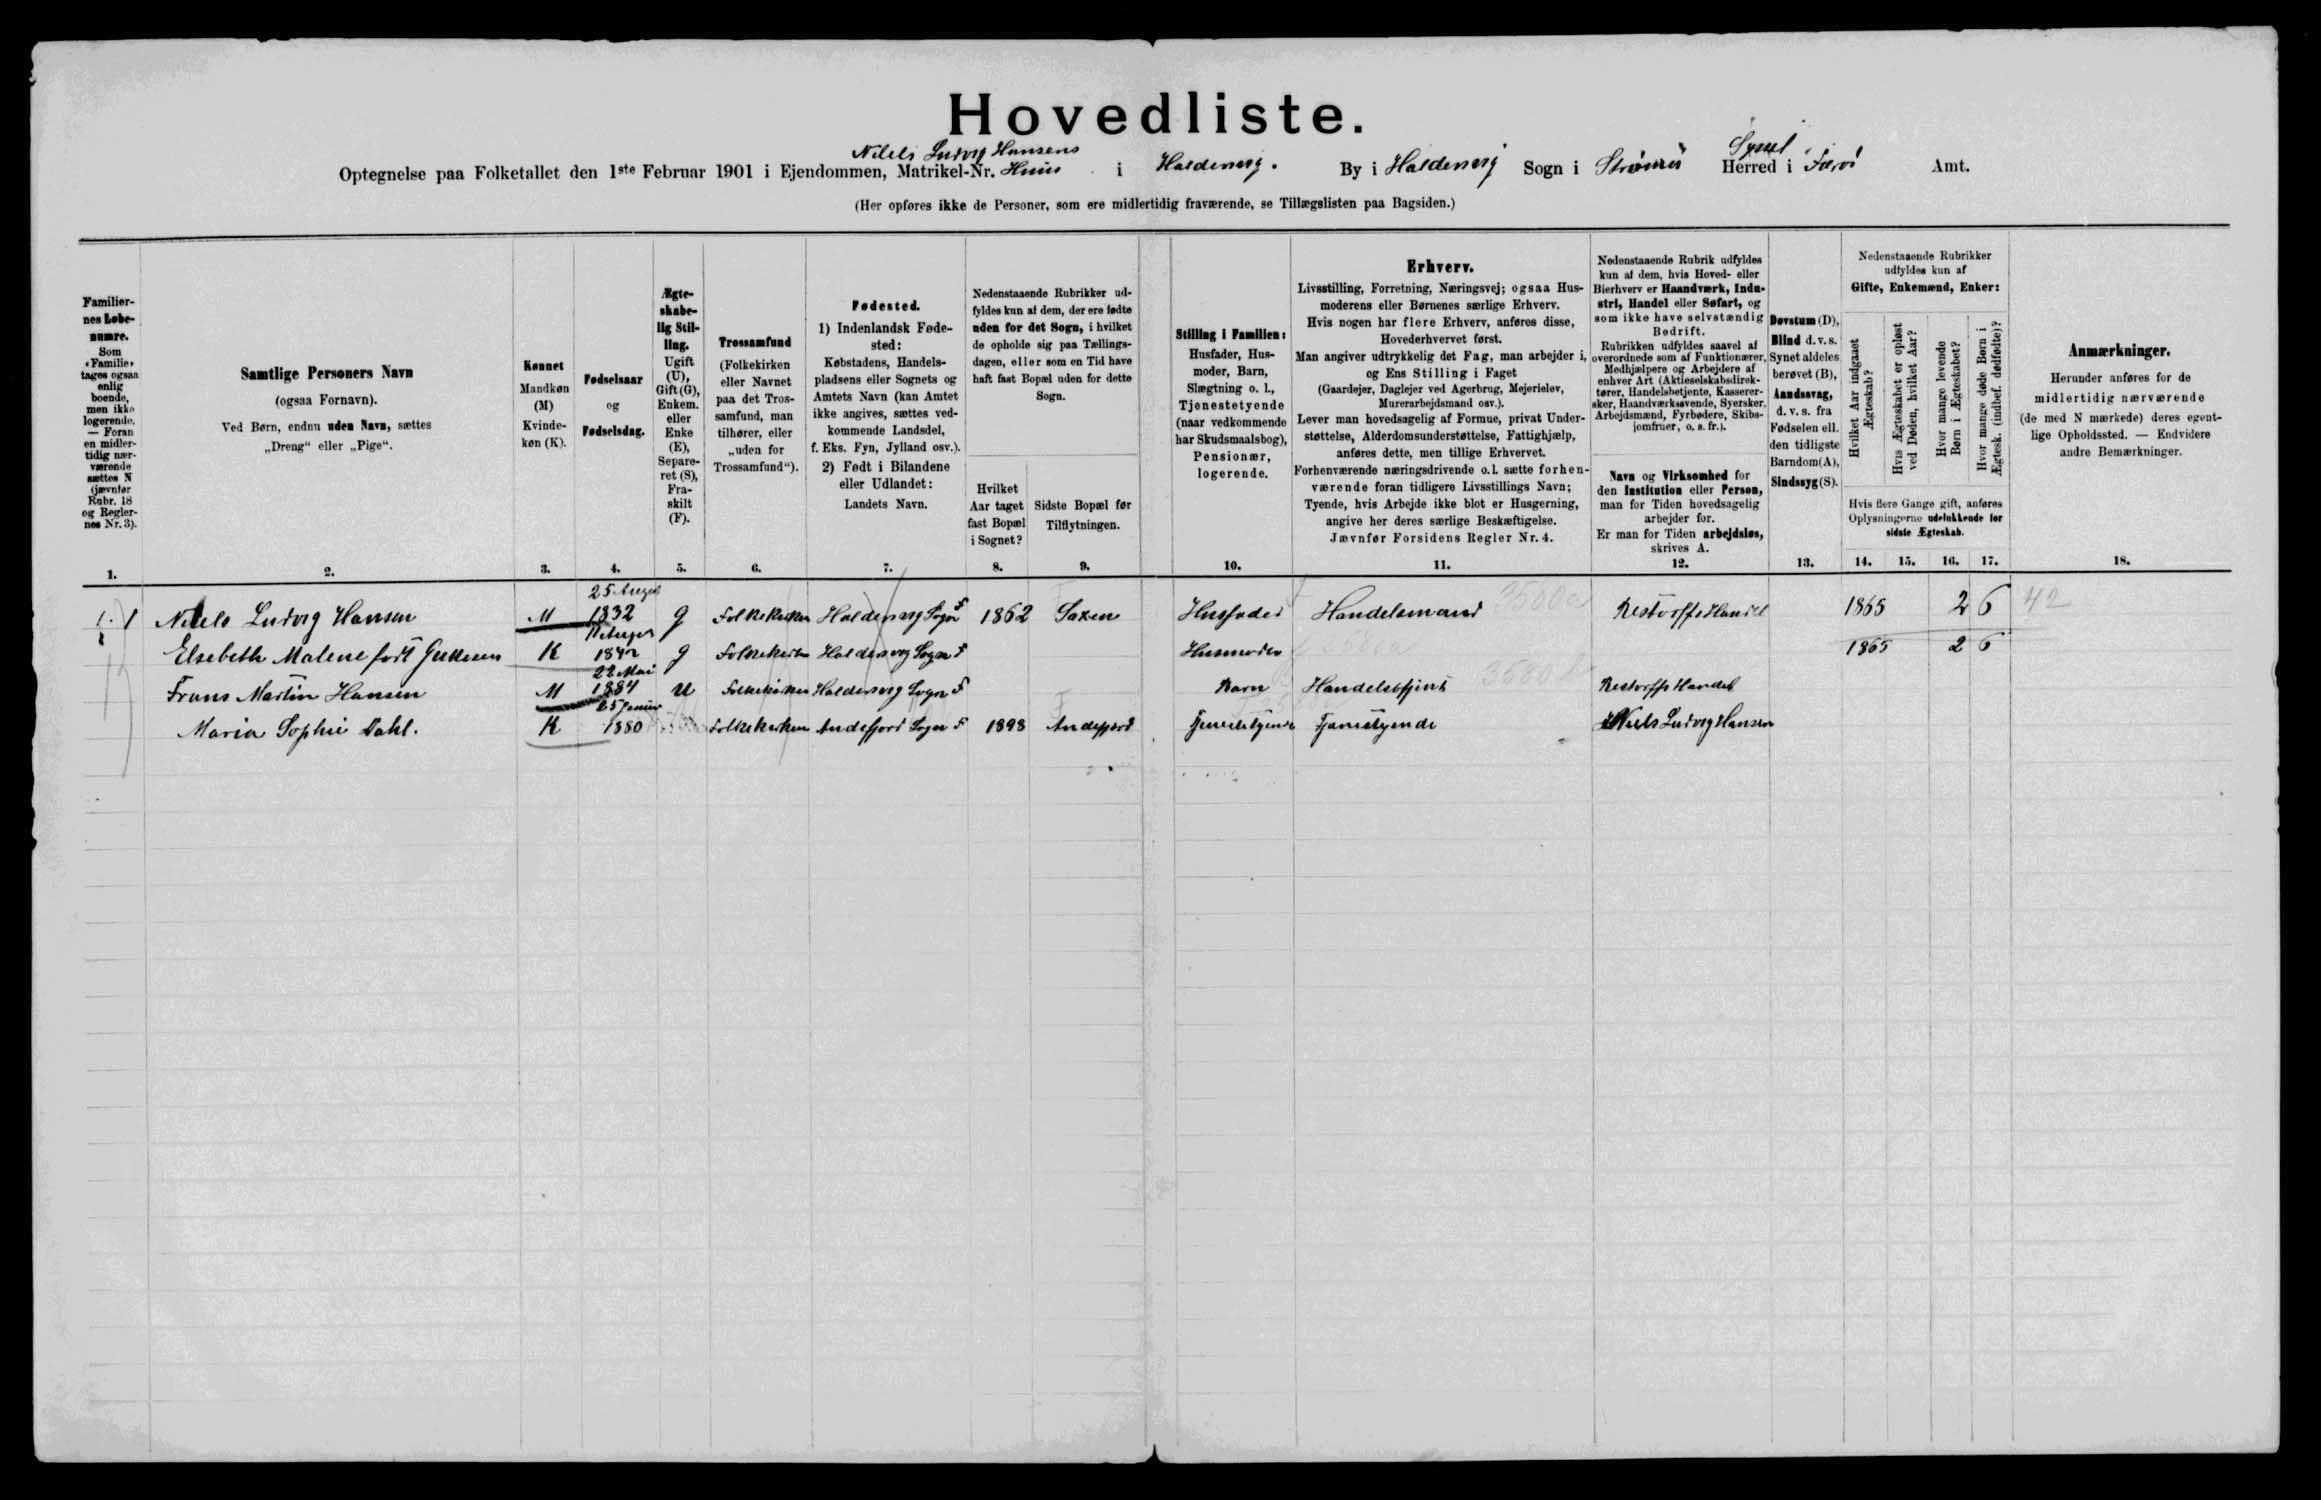 Hovedliste.
Nilels Ludvig Hansens Syssel
Optegnelse paa Folketallet den 1ste Februar 1901 i Ejendommen, Matrikel-Nr. Huus i Haldersvig. By i Haldersvig Sogn i Strømø Herred i Færø Amt.
(Her opføres ikke de Personer, som ere midlertidig fraværende, se Tillægslisten paa Bagsiden.)
Familier-
nes Løbe-
numre.
Som
«Familie»
tages ogsaa
enlig
boende,
men ikke
logerende.
— Foran
en midler-
tidig nær-
værende
sættes N
(jævnfør
Rubr. 18
og Regler-
nes Nr. 3).
1.
Samtlige Personers Navn
(ogsaa Fornavn).
Ved Børn, endnu uden Navn, sættes
„Dreng“ eller „Pige“.
2.
Kønnet
Mandkøn
(M)
Kvinde-
køn (K).
3.
Fødselsaar
og
Fødselsdag.
4.
Ægte-
skabe-
lig Stil-
ling.
Ugift
(U),
Gift (G),
Enkem.
eller
Enke
(E),
Separe-
ret (S),
Fra-
skilt
(F).
5.
Trossamfund
(Folkekirken
eller Navnet
paa det Tros-
samfund, man
tilhører, eller
„uden for
Trossamfund“).
6.
Fødested.
1) Indenlandsk Føde-
sted:
Købstadens, Handels-
pladsens eller Sognets og
Amtets Navn (kan Amtet
ikke angives, sættes ved-
kommende Landsdel,
f. Eks. Fyn, Jylland osv.).
2) Født i Bilandene
eller Udlandet:
Landets Navn.
7.
Nedenstaaende Rubrikker ud-
fyldes kun af dem, der ere fødte
uden for det Sogn, i hvilket
de opholde sig paa Tællings-
dagen, eller som en Tid have
haft fast Bopæl uden for dette
Sogn.
Hvilket
Aar taget
fast Bopæl
i Sognet?
8.
Sidste Bopæl før
Tilflytningen.
9.
Stilling i Familien:
Husfader, Hus-
moder, Barn,
Slægtning o. l.,
Tjenestetyende
(naar vedkommende
har Skudsmaalsbog),
Pensionær,
logerende.
10.
Erhverv.
Livsstilling, Forretning, Næringsvej; ogsaa Hus-
moderens eller Børnenes særlige Erhverv.
Hvis nogen har flere Erhverv, anføres disse,
Hovederhvervet først.
Man angiver udtrykkelig det Fag, man arbejder i,
og Ens Stilling i Faget
(Gaardejer, Daglejer ved Agerbrug, Mejerielev,
Murerarbejdsmand osv.).
Lever man hovedsagelig af Formue, privat Under-
støttelse, Alderdomsunderstøttelse, Fattighjælp,
anføres dette, men tillige Erhvervet.
Forhenværende næringsdrivende o. l. sætte forhen-
værende foran tidligere Livsstillings Navn;
Tyende, hvis Arbejde ikke blot er Husgerning,
angive her deres særlige Beskæftigelse.
Jævnfør Forsidens Regler Nr. 4.
11.
Nedenstaaende Rubrik udfyldes
kun af dem, hvis Hoved- eller
Bierhverv er Haandværk, Indu-
stri, Handel eller Søfart, og
som ikke have selvstændig
Bedrift.
Rubrikken udfyldes saavel af
overordnede som af Funktionærer,
Medhjælpere og Arbejdere af
enhver Art (Aktieselskabsdirek-
tører, Handelsbetjente, Kasserer-
sker, Haandværkssvende, Syersker,
Arbejdsmænd, Fyrbødere, Skibs-
jomfruer, o. s. fr.).
Navn og Virksomhed for
den Institution eller Person,
man for Tiden hovedsagelig
arbejder for.
Er man for Tiden arbejdsløs,
skrives A.
12.
Døvstum (D),
Blind d. v. s.
Synet aldeles
berøvet (B),
Aandssvag,
d. v. s. fra
Fødselen ell.
den tidligste
Barndom (A),
Sindssyg (S).
13.
Nedenstaaende Rubrikker
udfyldes kun af
Gifte, Enkemænd, Enker:
Hvilket Aar indgaaet
Ægteskab?
Hvis Ægteskabet er opløst
ved Døden, hvilket Aar?
Hvor mange levende
Børn i Ægteskabet?
Hvor mange døde Børn i
Ægtesk. (indbef. dødfødte)?
Hvis flere Gange gift, anføres
Oplysningerne udelukkende for
sidste Ægteskab.
14. 15. 16. 17.
Anmærkninger.
Herunder anføres for de
midlertidig nærværende
(de med N mærkede) deres egent-
lige Opholdssted. — Endvidere
andre Bemærkninger.
18.
25 August
1. 1 Nilels Ludvig Hansen M 1832 g Folkekirken Haldersvig Sogn F 1862 Saxen Husfader Handelsmand 3500 a Restorffs Handel 1865 2 6 42
Elsebeth Malene født K 1842 g Folkekirken Haldersvig Sogn F Husmoder 1865 2 6
22 Mai
Frans Martin Hansen M 1884 U Folkekirken Haldersvig Sogn F Barn Handelsbtjent 3580 Restorffs Handel
25 Januar
Maria Sophie Dahl. K 1880 Folkekirken Andefjord Sogn F 1898 Andefjord Tjenestetyende Tjenestyende Niels Ludvig Hansen